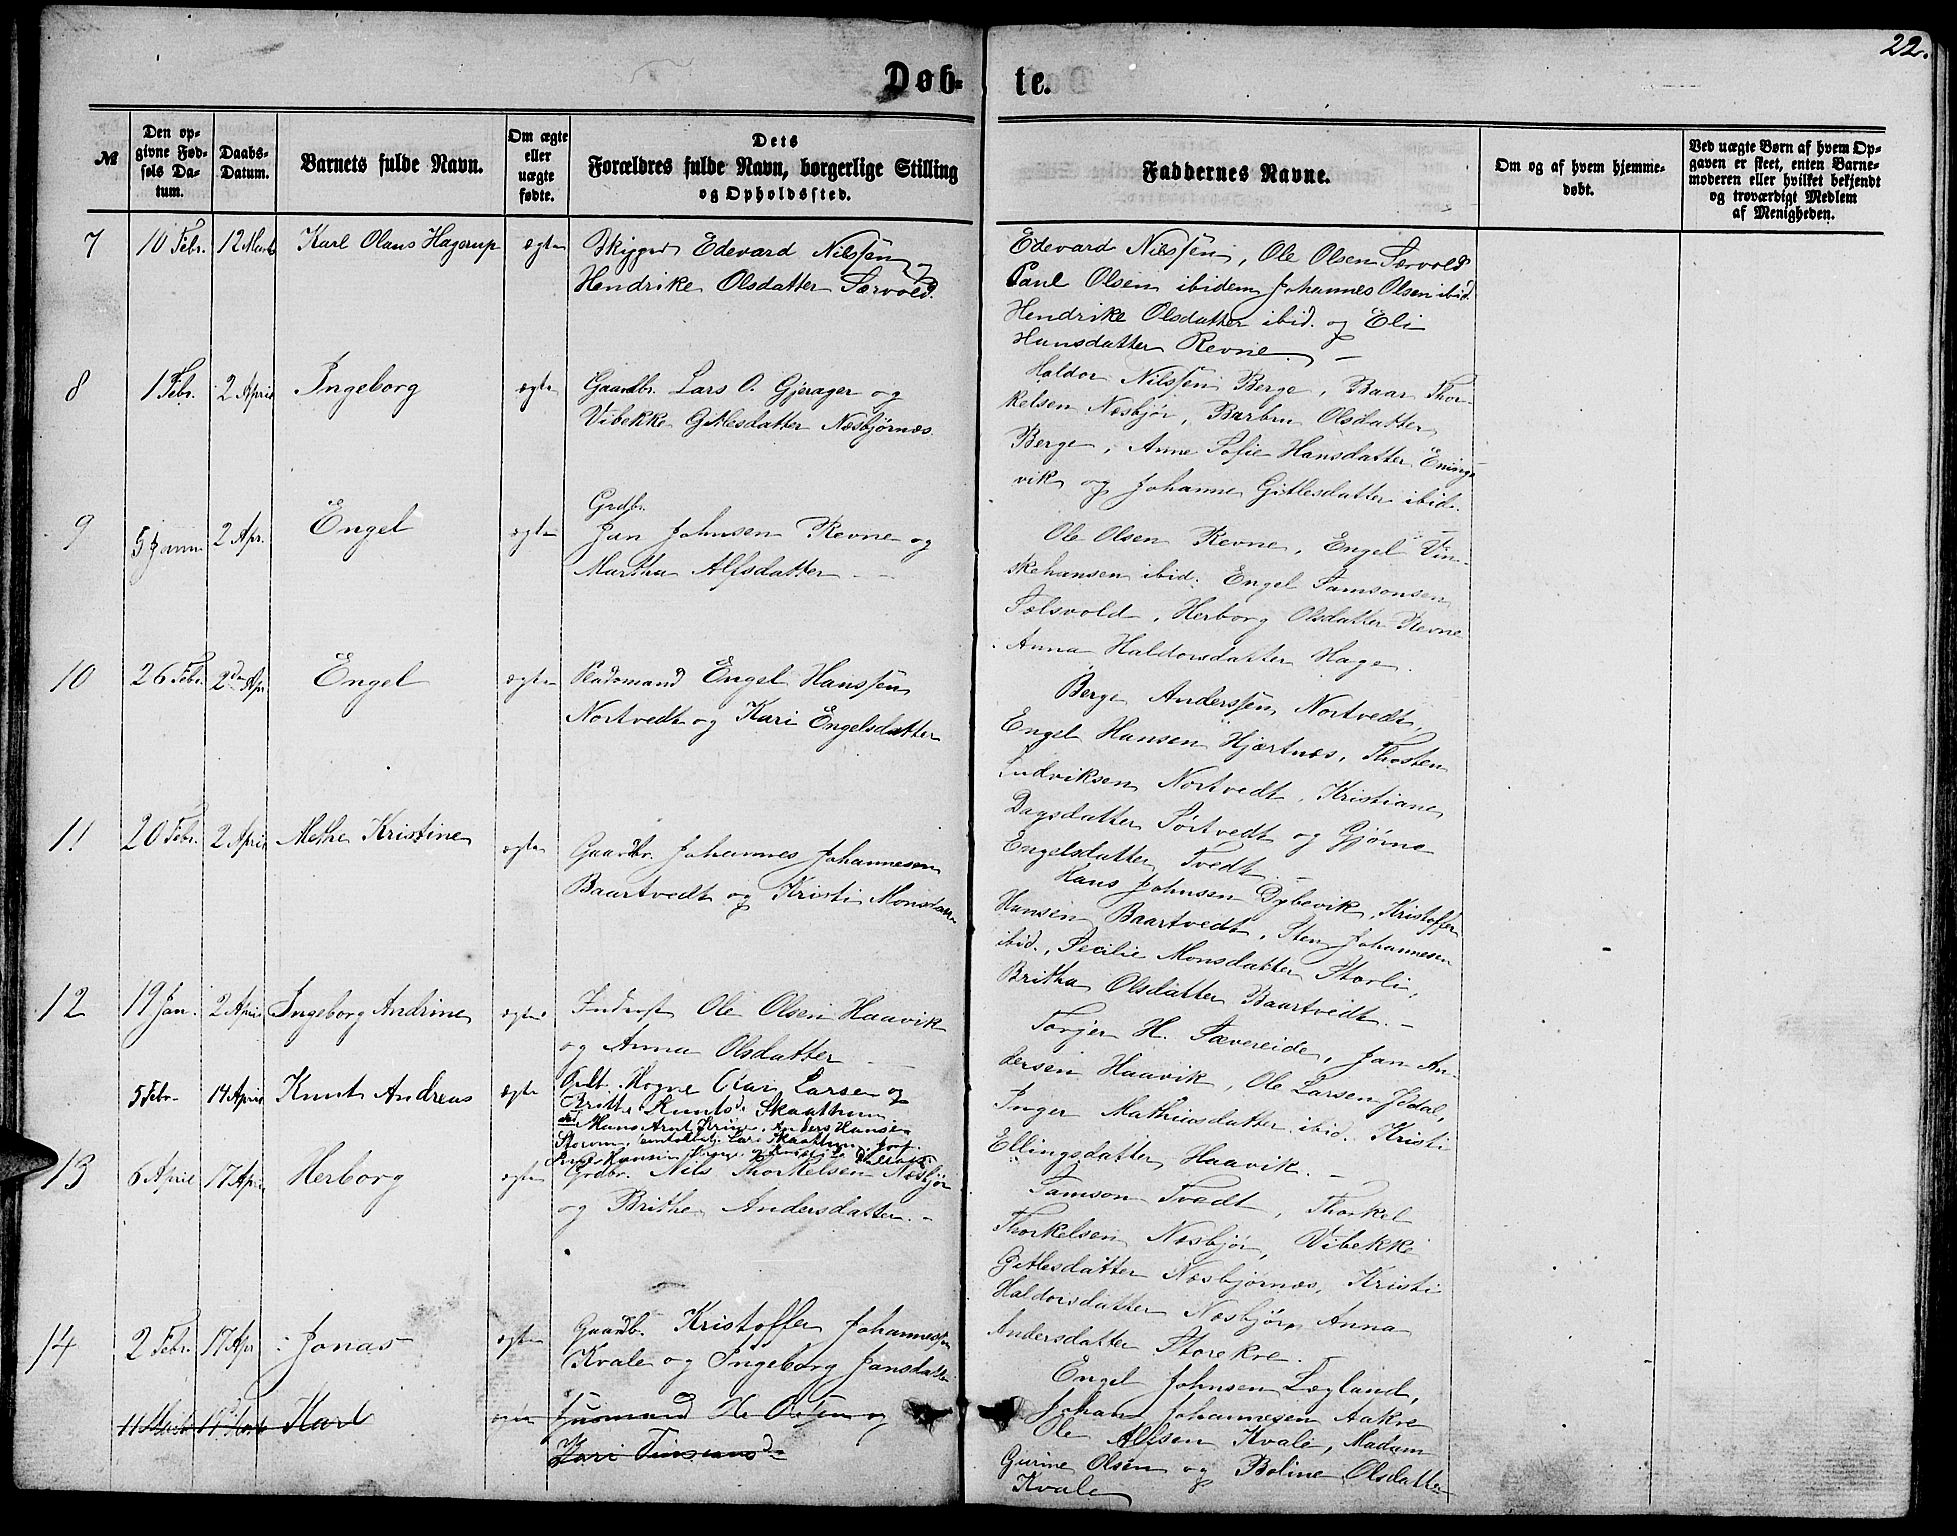 22.
Døb-
te.
№
Den op-
givne Fød-
sels Da-
tum.
Daabs-
Datum.
Barnets fulde Navn.
Om ægte
eller
uægte
fødte.
Dets
Forældres fulde Navn, borgerlige Stilling
og Opholdssted.
Faddernes Navne.
Om og af hvem hjemme-
døbt.
Ved uægte Børn af hvem Op-
gaven er skeet, enten Barne-
moderen eller hvilket bekjendt
og troværdigt Medlem
af Menigheden.
7
10 Febr.
12 Marts
Karl Olaus Hagerup
ægte
Edevard Nilssen og
Hendrike Olsdatter Særvold.
Edevard Nilssen, Ole Olsen Særvold
Paul Olsen ibidem Johannes Olsen ibid.
Hendrike Olsdatter ibid. og Eli
Hansdatter Revne. –
8
1 Febr.
2 April
Ingeborg
ægte
Gaardbr. Lars O. Gjerager og
Vibekke Gitlesdatter Næsbjørnæs.
Haldor Nilssen Berge, Baar Thor-
kelsen Næsbjør, Barbru Olsdatter
Berge, Anne Sofie Hansdatter Eninge-
vik og Johanne Gitlesdatter ibid.
9
5 Januar
2 Apr.
Engel
ægte
Grdbr.
Jan Johnsen Revne og
Martha Alfsdatter – –
Ole Olsen Revne, Engel Vin-
skehansen ibid. Engel Samsonsen
Sælsvold, Herborg Olsdatter Revne
Anna Haldorsdatter Hage.
10
26 Febr.
2de Apr.
Engel
ægte
Pladsmand Engel Hanssen
Nortvedt og Kari Engelsdatter
Berge Anderssen Nortvedt,
Engel Hansen Hjærtnes, Thosten
Ludviksen Nortvedt, Kristiane
Dagsdatter Sørtvedt og Gjørne
Engelsdatter Tvedt. –
11
20 Febr.
2 April
Methe Kristine
ægte
Gaardbr. Johannes Johannesen
Baartvedt og Kristi Monsdatter
Hans Johnsen Dybevik, Kristoffer
Hansen Baartvedt, Sten Johannesen
ibid., Secilie Monsdatter Storli,
Britha Olsdatter Baartvedt. –
12
19 Jan.
2 April
Ingeborg Andrine
ægte
Inderst Ole Olsen Haavik
og Anna Olsdatter –
Torjer H. Sævereide, Jan An-
dersen Haavik, Ole Larsen Jddal,
Inger Mathiasdatter ibid. Kristi
Ellingsdatter Haavik. –
5 Febr.
14 April
Knut Andreas
ægte
Mogne Larsen og
Britha Knutsd. Skaathun
13
6 April
17 April
Herborg
ægte
Grdbr. Nils Thorkelsen Næsbjør
og Brithe Andersdatter. –
Samson Tvedt, Thorkel
Thorkelsen Næsbjør, Vibekke
Gitlesdatter Næsbjørnæs, Kristi
Haldorsdatter Næsbjør, Anna
Andersdatter Storekre. –
14
2 Febr.
17 Apr.
Jonas
ægte
Gaardb. Kristoffer Johannessen
Kvale og Ingeborg Jansdatter
Engel Johnsen Lægland,
Johan Johannesen Aakre
Ole Alfsen Kvale, Madam
Gurine Olsen og Boline Olsdatter
Kvale
Karl
ægte
og
Kari